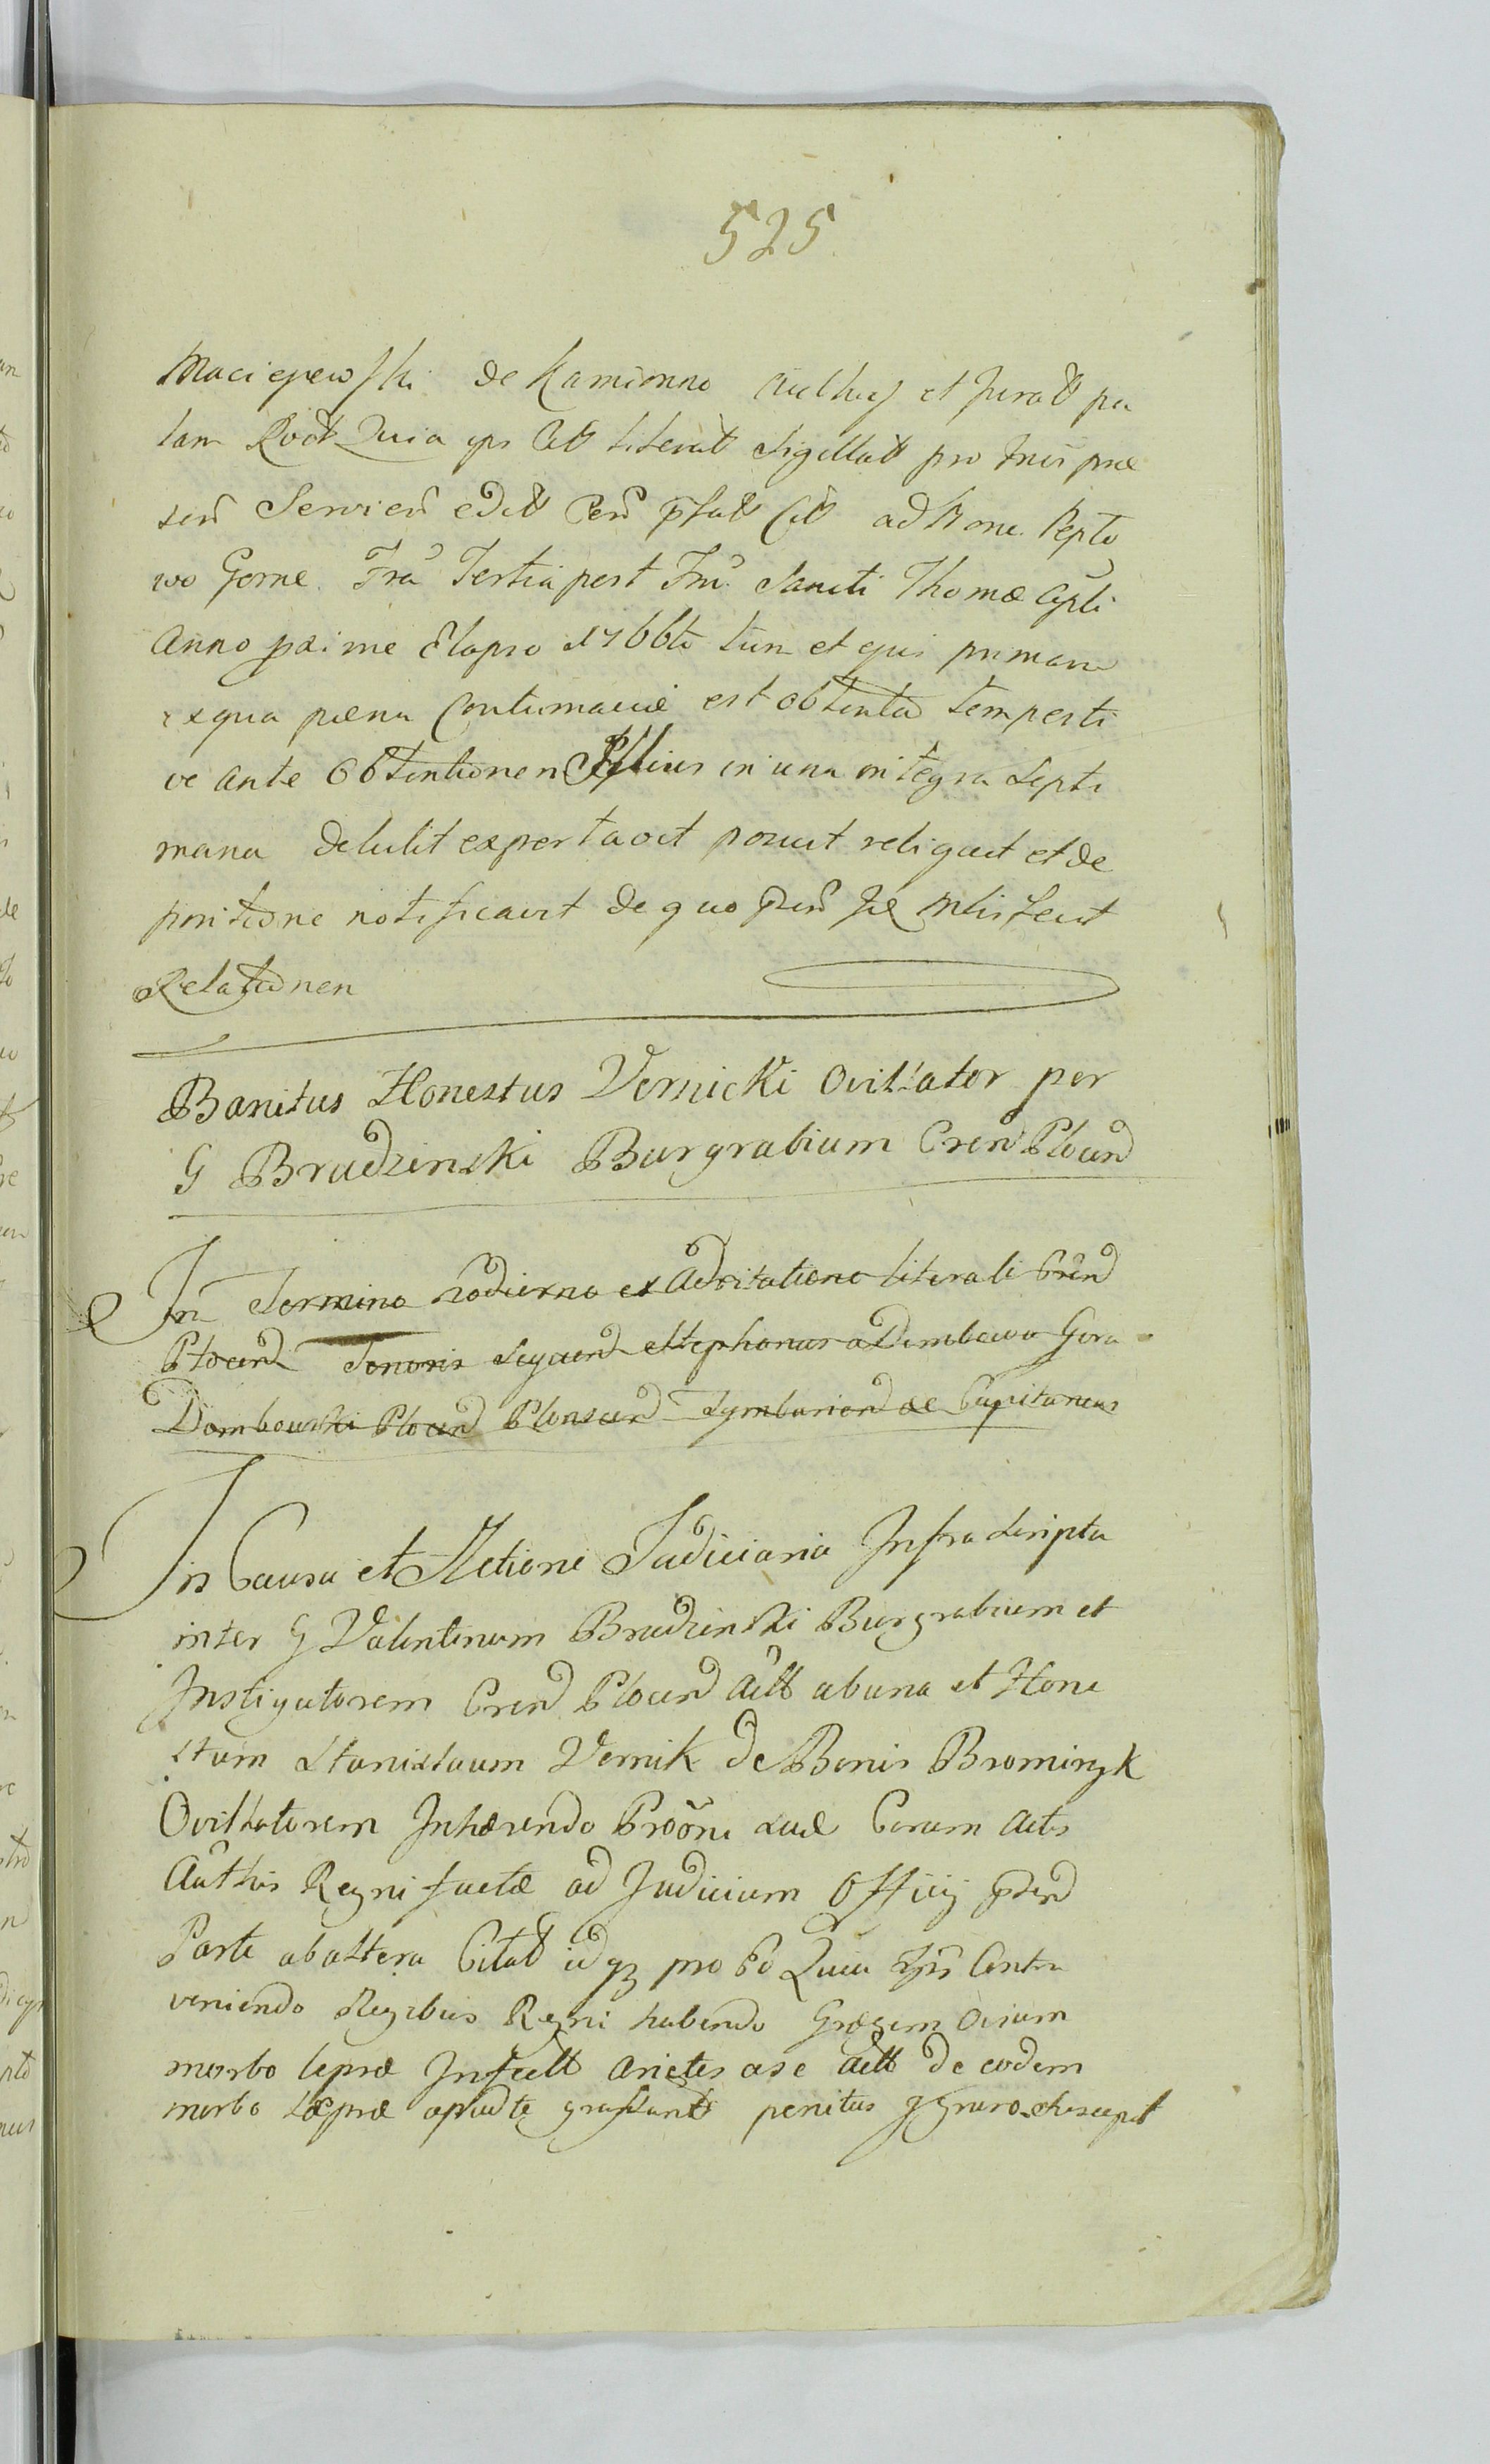 525
Maciejewski de Kamionno et Jurat pa
lam Quia ips Citt Literalt Sigillatt pro Tnis præ
sen Servien edit Cen psatt Citt ad Bona Pepło
wo Gorne Fria Tertia post Ftm Sancti Thomæ Apli
Anno pxime Elapso 1766to tum et ejus primam
ex qua pæna Contumaciæ est obtenta tempesti
ve ante Obtentionem Illius in una integra Septi
mana detulit exportavit posuit reliquit et de
positione notificavit de quo psen fecit
Relationem
Banitus Honestus Vernicki Ovillator per
G Brudzinski Burgrabium Cren Plocen
In Termino hodierno ex Adcitatione literali Cren
Plocen Tenoris Sequen Stephanus a Dembowa Gora
Dombowski Plocen Plonscen Szymbarien &c Capitaneus
In Causa et Actione Judiciaria Infrascripta
inter G Valentinum Brudzinski Burgrabium et
Instigatorem Cren Plocen Actt ab una et Hone
stum Stanislaum Vernik de Bonis Bromirzyk
Ovillatorem Inhærendo Prooni suæ Coram Actis
Authis Regni factæ ad Judicium Officij psen
Parte ab altera Citatt idqz pro Eo Quia Ips Contra
veniendo Legibus Regni habendo Gregem Ovium
morbo lepræ Infectt Arietes a se Actt de eodem
morbo Læpræ apud te grassant penitus ignaro suscepit